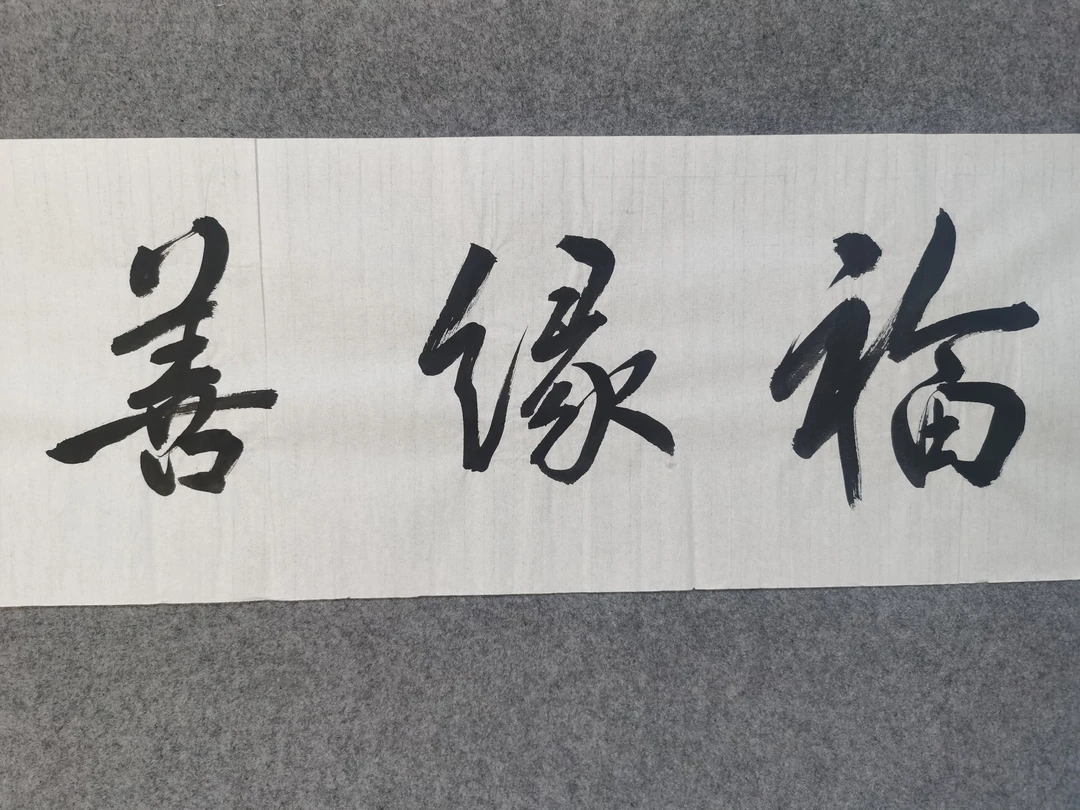 福缘善